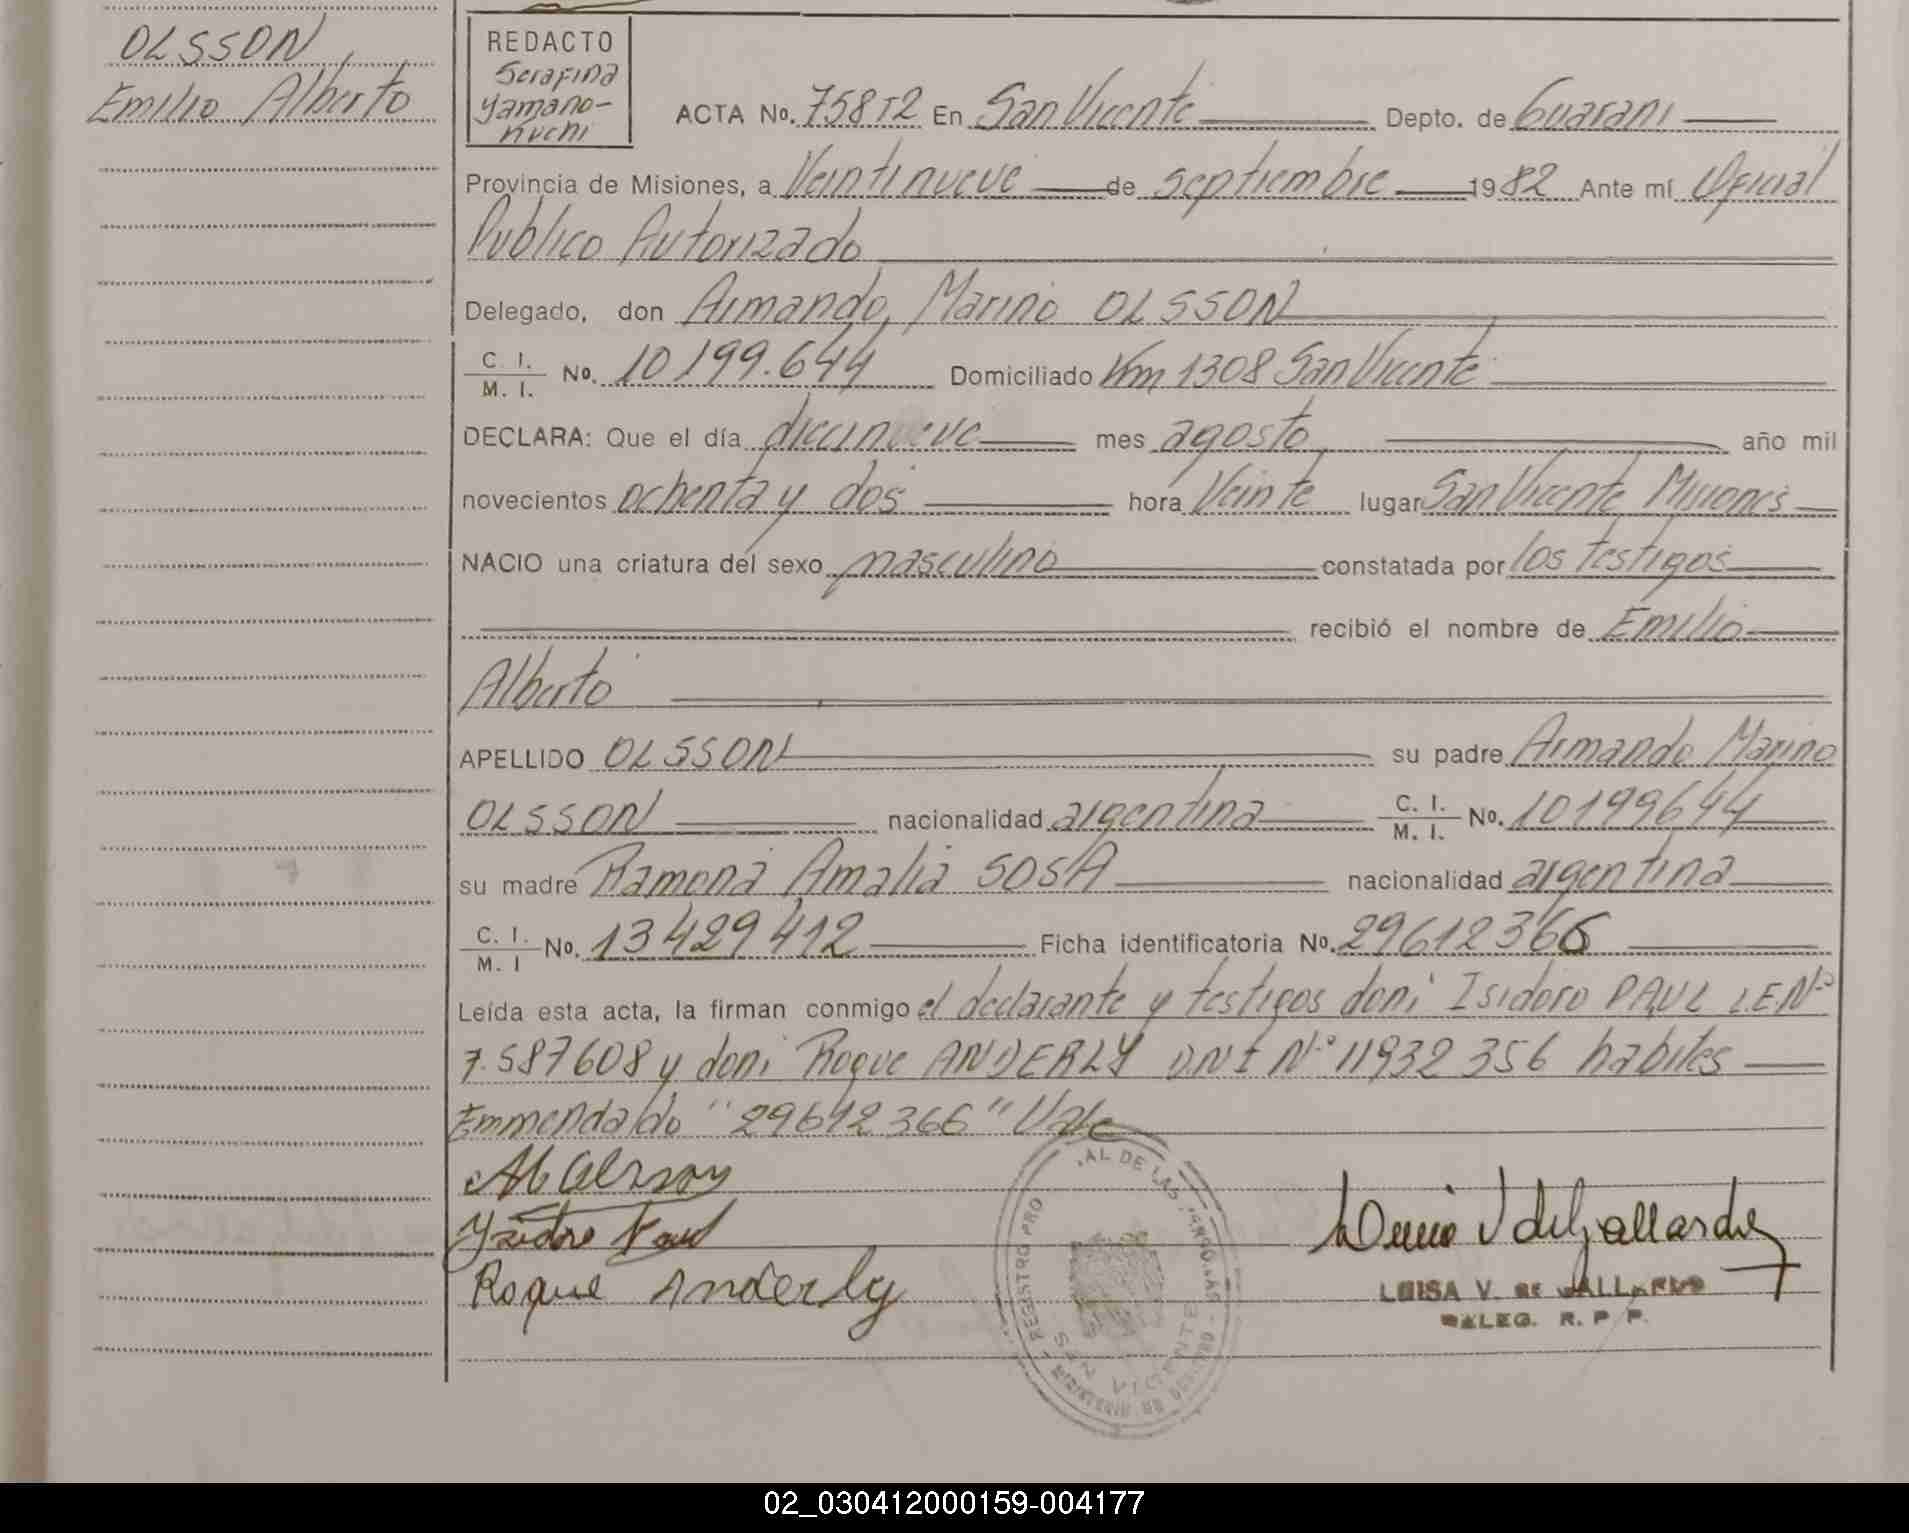 OLSSON
Emilio Alberto
REDACTO
Serafina
Yamano-
nuchi
ACTA No. 75812 En San Vicente Depto. de Guarani
Provincia de Misiones, a Veintinueve de septiembre 1982 Ante mí Oficial
Publico Autorizado
Delegado, don Armando Marino OLSSON
C. I.
M. I. No. 10199.644 Domiciliado Km 1308 San Vicente
DECLARA: Que el día diecinueve mes agosto año mil
novecientos ochenta y dos hora Veinte lugar San Vicente Misiones
NACIO una criatura del sexo masculino constatada por los testigos
recibió el nombre de Emilio
Alberto
APELLIDO OLSSON su padre Armando Marino
OLSSON nacionalidad argentina C. I. M. I. No. 10199644
su madre Ramona Amalia SOSA nacionalidad argentina
C. I. M. I No. 13429412 Ficha identificatoria No. 29612366
Leída esta acta, la firman conmigo el declarante y testigos doni Isidoro PAUL L.E.Nº
7.587608 y doni Roque ANDERLY DNI Nº 11932356 habiles
Emmendado "29612366" Vale
Roque Anderly
LUISA V. DE GALLARDO
DELEG. R. P. P.
REGISTRO PRO
AL DE LAS
SAN VICENTE
02_030412000159-004177